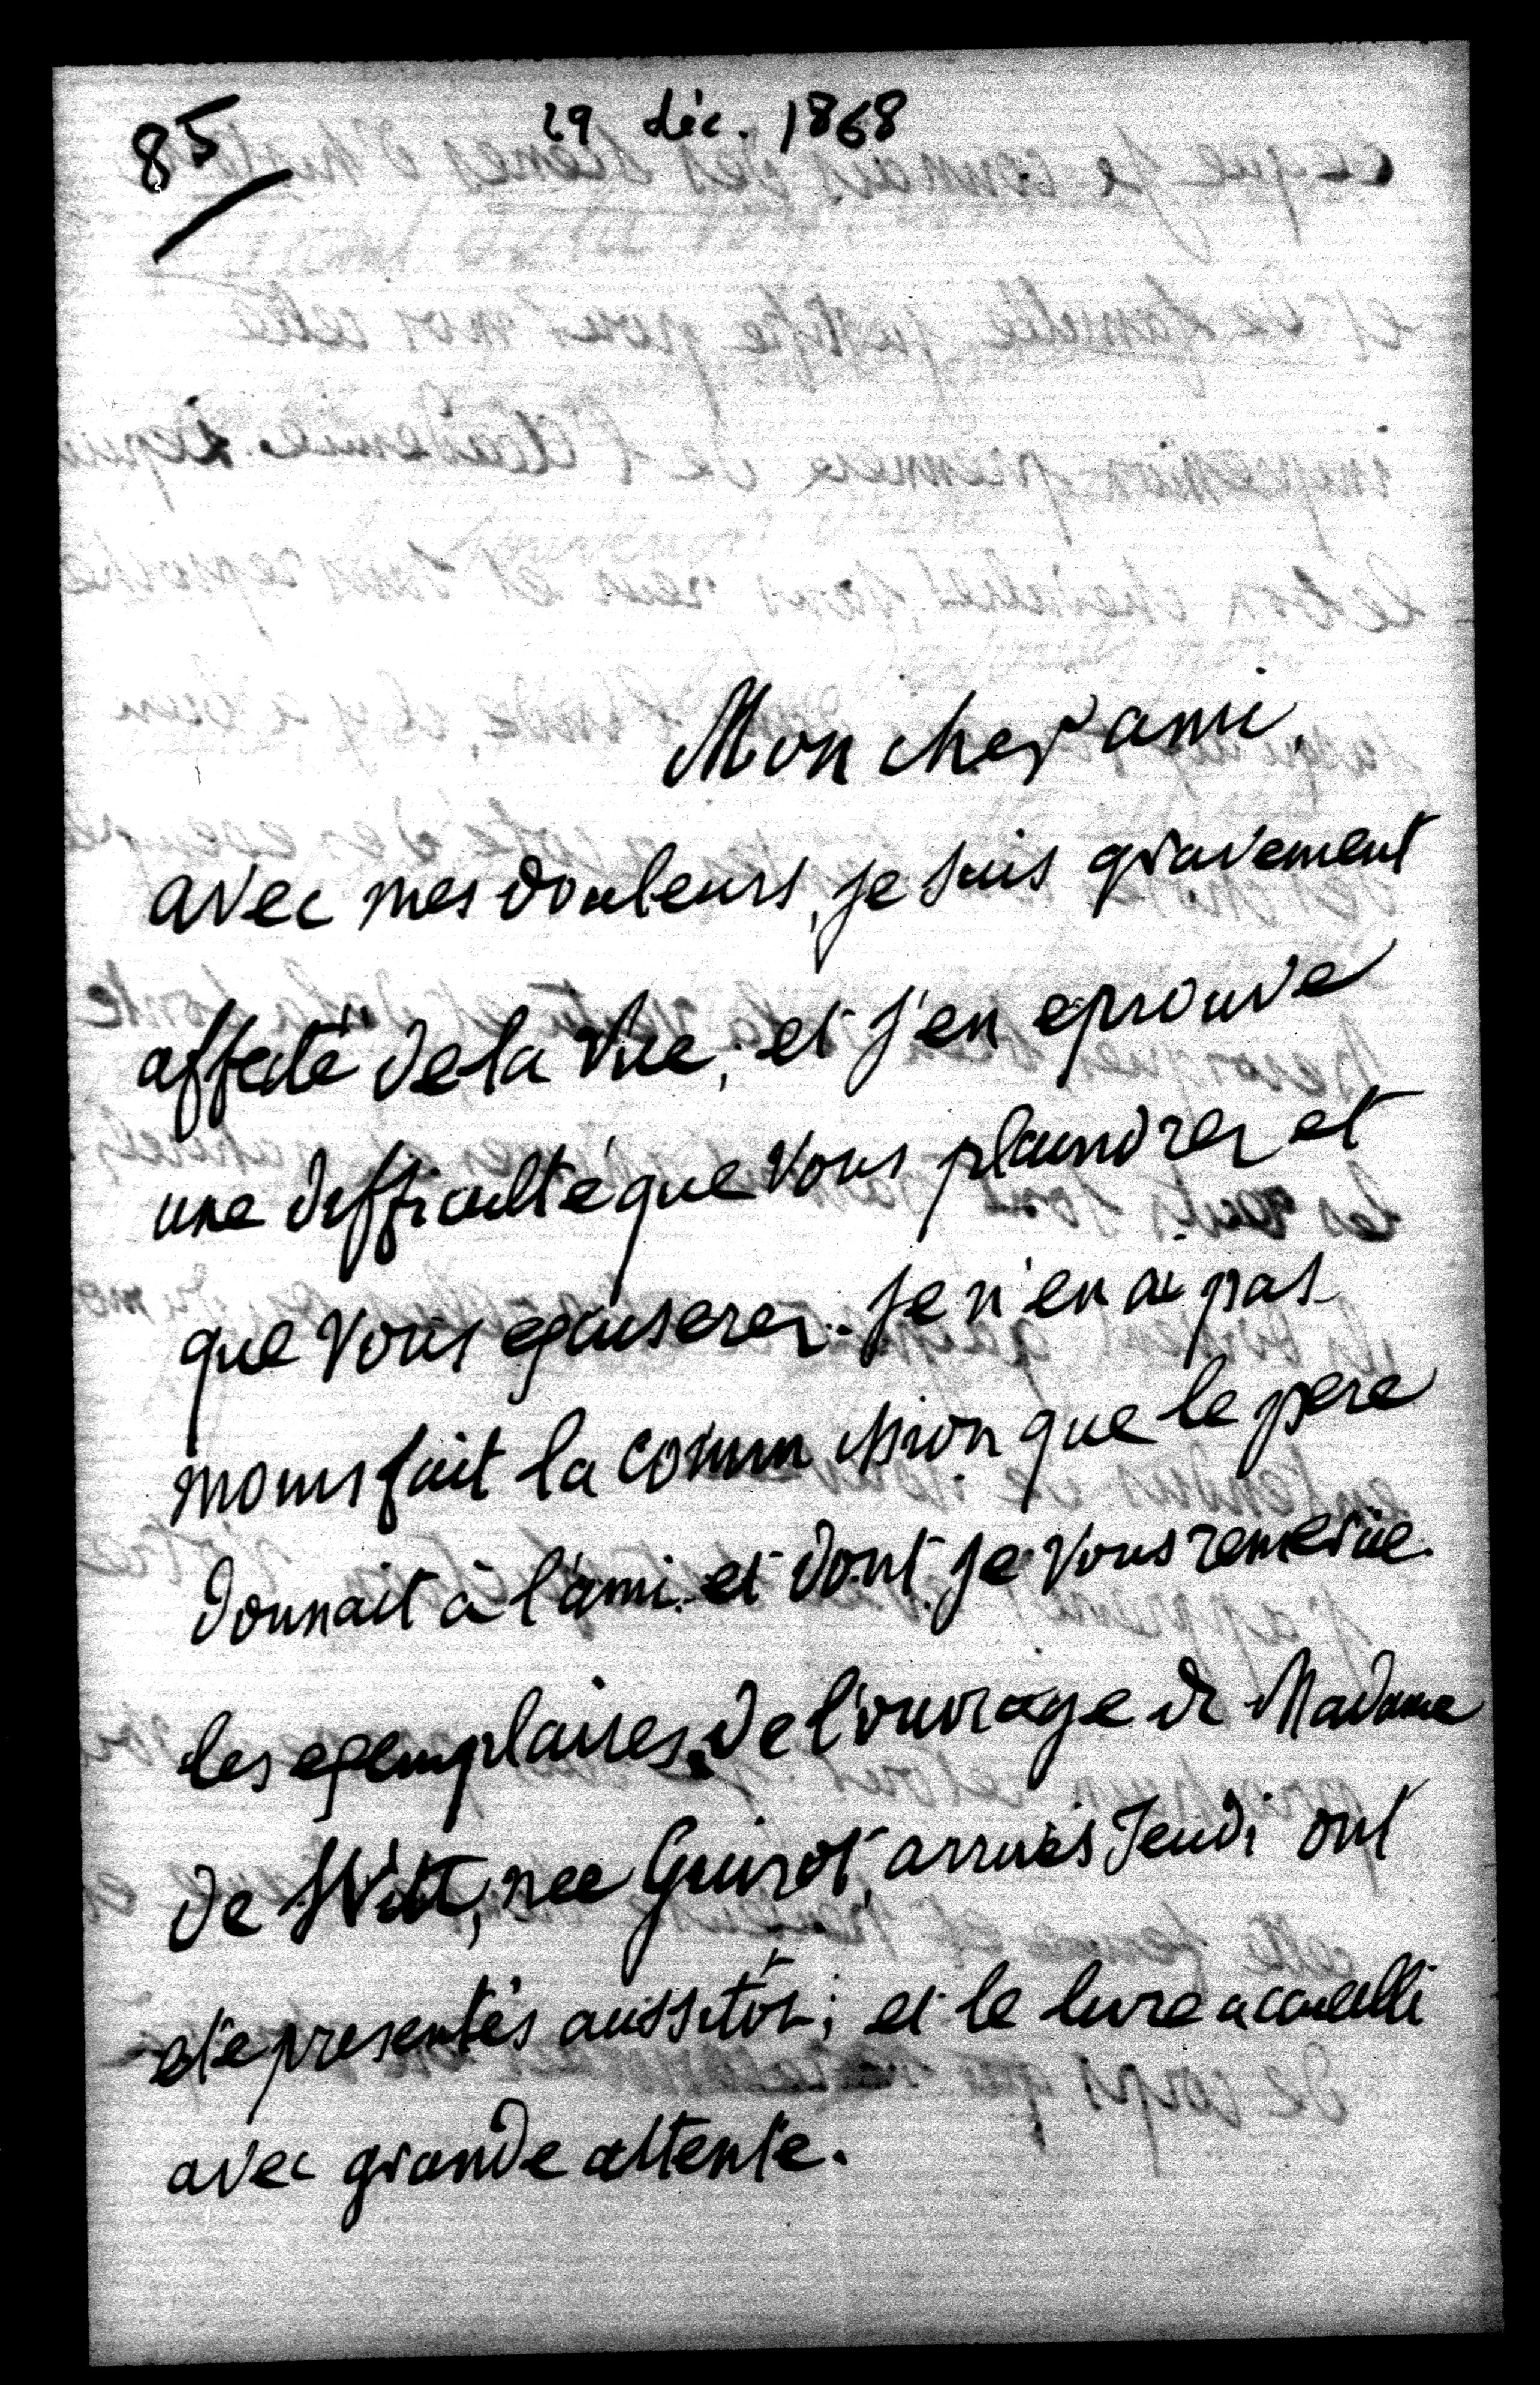 85
29 déc. 1868
Mon cher ami,
avec mes douleurs, je suis gravement
affecté de la vue, et j'en eprouve
une difficulté que vous plaindrez et
que vous excuserez. Je n'en ai pas
moins fait la commission que le pere
donnait à l'ami et dont je vous remercie.
les exemplaires de l'ouvrage de Madame
de Witt, nee Guizot, arrivés Jeudi ont
eté presentés aussitôt; et le livre accueilli
avec grande attente.